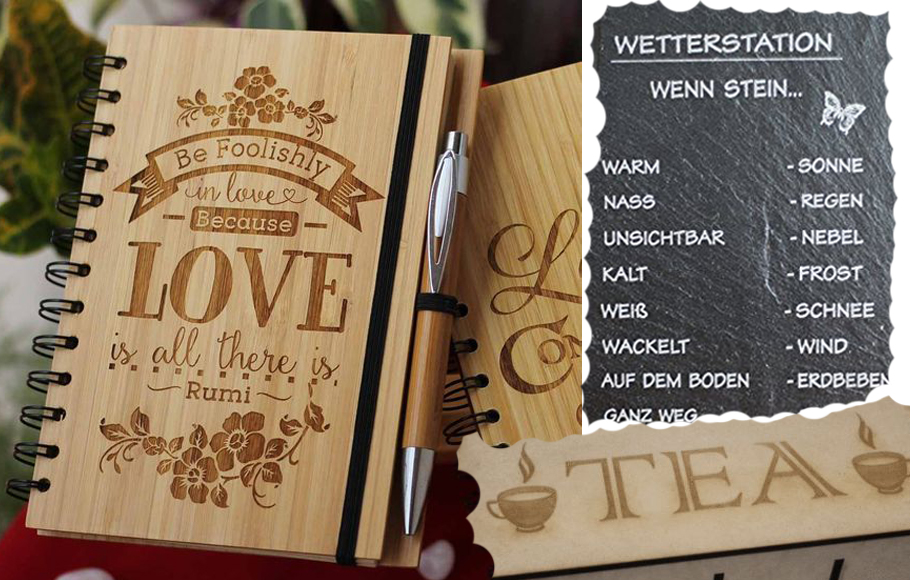 Be Foolishly
in love
Because
LOVE
is all there is.
Rumi
WETTERSTATION
WENN STEIN...
WARM - SONNE
NASS - REGEN
UNSICHTBAR - NEBEL
KALT - FROST
WEIß - SCHNEE
WACKELT - WIND
AUF DEM BODEN - ERDBEBEN
GANZ WEG
TEA